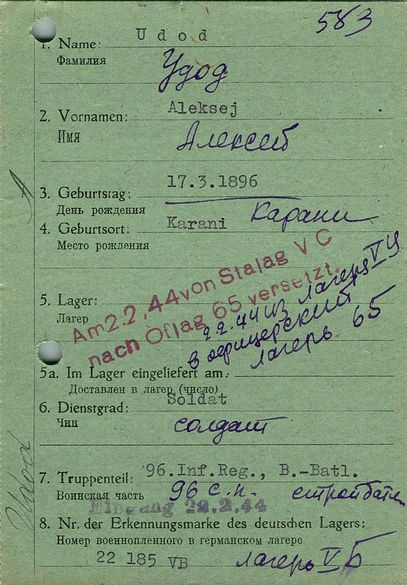 583
1. Name: Udod
Фамилия Удод
2. Vornamen: Aleksej
Имя Алексей
3. Geburtstag: 17.3.1896
День рождения
4. Geburtsort: Karani Карани
Место рождения
Am 2.2.44 von Stalag V C
nach Oflag 65 versetzt.
5. Lager: 2.2.44 из лагеря V Ц
Лагерь в офицерский
лагерь 65
5a. Im Lager eingeliefert am:
Доставлен в лагер (число)
6. Dienstgrad: Soldat
Чин солдат
7. Truppenteil: 96.Inf.Reg., B.-Batl.
Воинская часть 96 с.п. стройбатал
Eingang 22.2.44
8. Nr. der Erkennungsmarke des deutschen Lagers:
Номер военнопленного в германском лагере
22 185 VB лагерь V Б
Udod